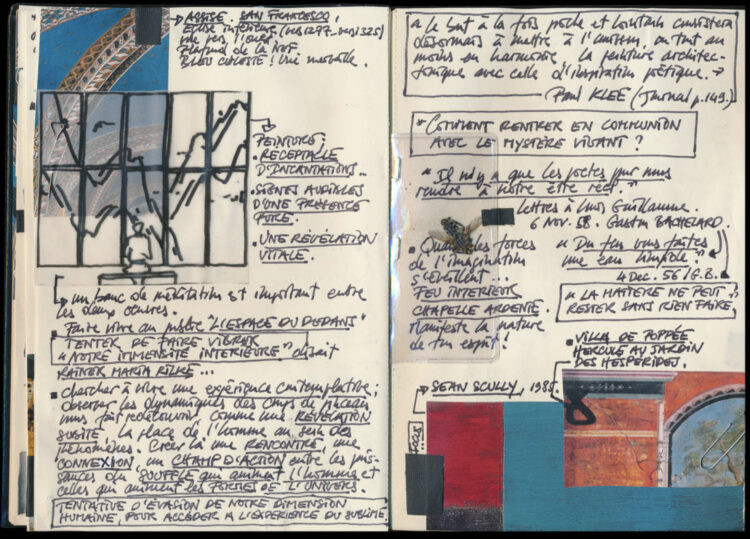 ASSISE. SAN FRANCESCO,
vue vers l'ouest
Plafond de la nef
BLEU CÉLESTE! Une merveille.
PEINTURE:
• RÉCEPTACLE
D'INCANTATIONS..
• SIGNES AUDIBLES
D'UNE PRÉSENCE
PURE.
• UNE RÉVÉLATION
VITALE.
un banc de méditation est important entre
les deux œuvres.
• Faire vivre au public "L'ESPACE DU DEDANS"
TENTER DE FAIRE VIBRER
"NOTRE IMMENSITÉ INTÉRIEURE" disait
RAINER MARIA RILKE...
• chercher à vivre une expérience contemplative;
observer les dynamiques des coups de pinceau,
nous fait redécouvrir comme une RÉVÉLATION
SUBITE, la place de l'homme au sein des
phénomènes. Créer là une RENCONTRE, une
CONNEXION, un CHAMP D'ACTION entre les puis-
sances du SOUFFLE qui animent l'homme et
celles qui animent les FORMES DE L'UNIVERS.
TENTATIVE D'ÉVASION DE NOTRE DIMENSION
HUMAINE, POUR ACCÉDER A L'EXPÉRIENCE DU SUBLIME
« Le but à la fois proche et lointain consistera
désormais à mettre à l'unisson, ou tout au
moins en harmonie la peinture architec-
tonique avec celle d'inspiration poétique. »
Paul KLEE (Journal p.149.)
"COMMENT RENTRER EN COMMUNION
AVEC LE MYSTÈRE VIVANT?
" Il n'y a que les poètes pour nous
rendre à notre être réel."
Lettres à Louis Guillaume.
6 NOV. 58. Gaston BACHELARD.
• Quand les forces
de l'imagination
s'éveillent...
FEU INTÉRIEUR
CHAPELLE ARDENTE.
manifeste la nature
de ton esprit!
« Du feu vous faites
une eau limpide."
4 Dec. 56 / G.B.
« LA MATIÈRE NE PEUT
RESTER SANS RIEN FAIRE.
• VILLA DE POPPÉE
HERCULE AU JARDIN
DES HESPÉRIDES.
SEAN SCULLY, 1985.